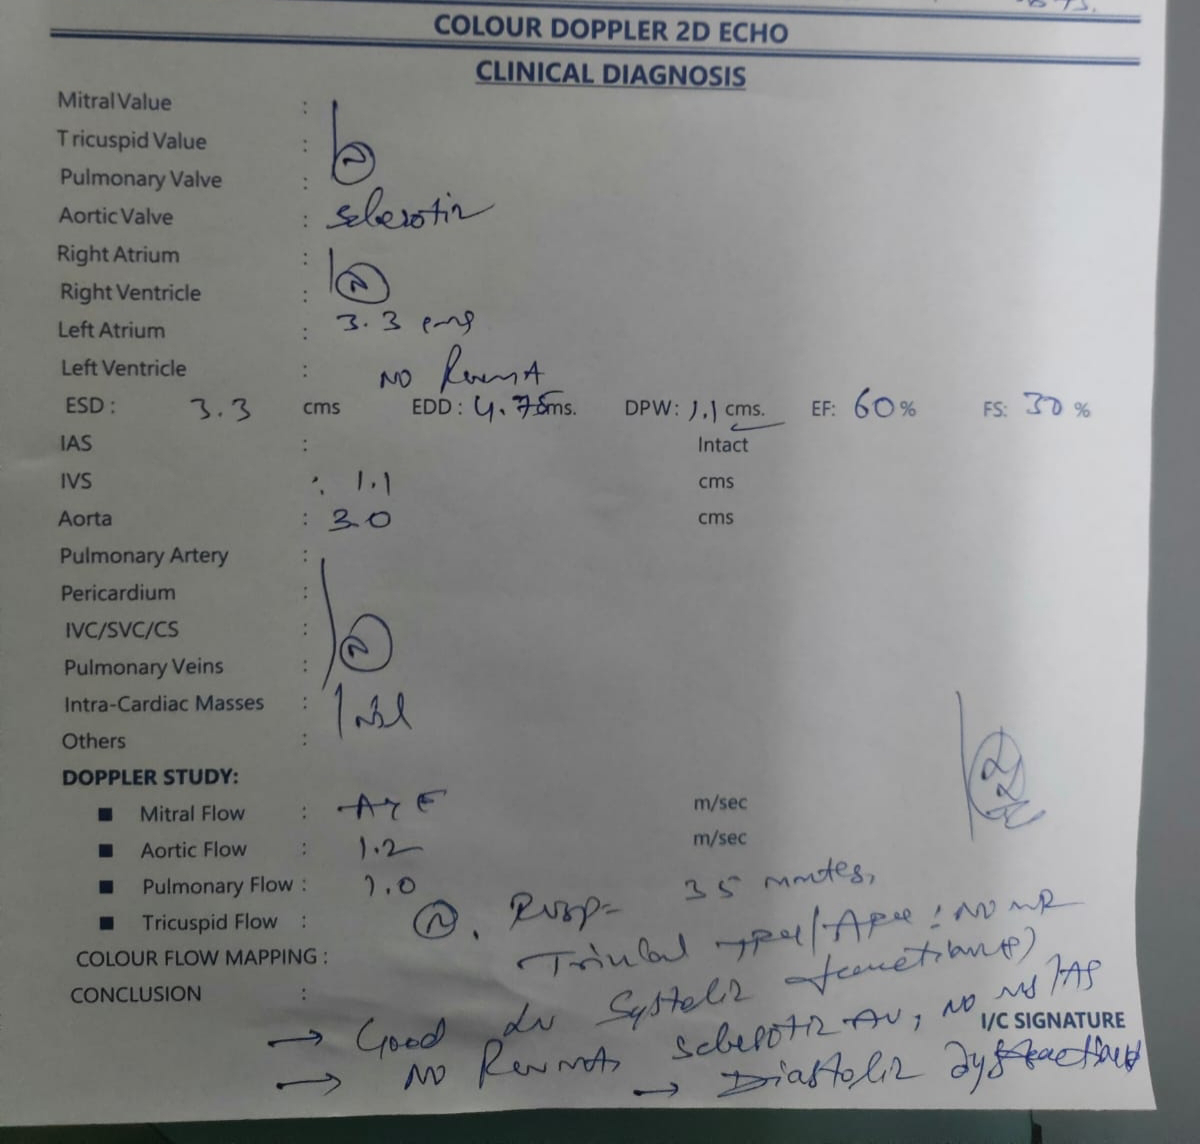 COLOUR DOPPLER 2D ECHO
CLINICAL DIAGNOSIS
Mitral Value :
Tricuspid Value : N
Pulmonary Valve :
Aortic Valve : Sclerotic
Right Atrium :
Right Ventricle : N
Left Atrium : 3.3 cms
Left Ventricle : NO RWMA
ESD : 3.3 cms EDD : 4.75 cms. DPW: 1.1 cms. EF: 60 % FS: 30 %
IAS : Intact
IVS : 1.1 cms
Aorta : 3.0 cms
Pulmonary Artery :
Pericardium :
IVC/SVC/CS : N
Pulmonary Veins :
Intra-Cardiac Masses : Nil
Others :
DOPPLER STUDY:
■ Mitral Flow : A > E m/sec
■ Aortic Flow : 1.2 m/sec
■ Pulmonary Flow : 1.0
■ Tricuspid Flow : N. RVSP = 35 mmHg,
COLOUR FLOW MAPPING : Trivial TR / AR : NO MR
CONCLUSION :
→ Good LV Systolic function
I/C SIGNATURE
→ NO RWMA Sclerotic AV, NO MS/AS
→ Diastolic dysfunction